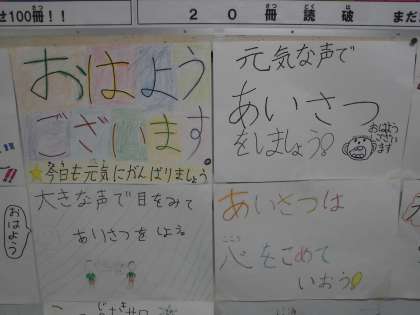 せ100冊！！
20冊読破
まだ
おはよう
ございます
今日も元気にがんばりましょう
元気な声で
あいさつ
をしましょう
おはよう
ございます
大きな声で目をみて
あいさつをしよう
おはよう
あいさつは
心をこめて
いおう